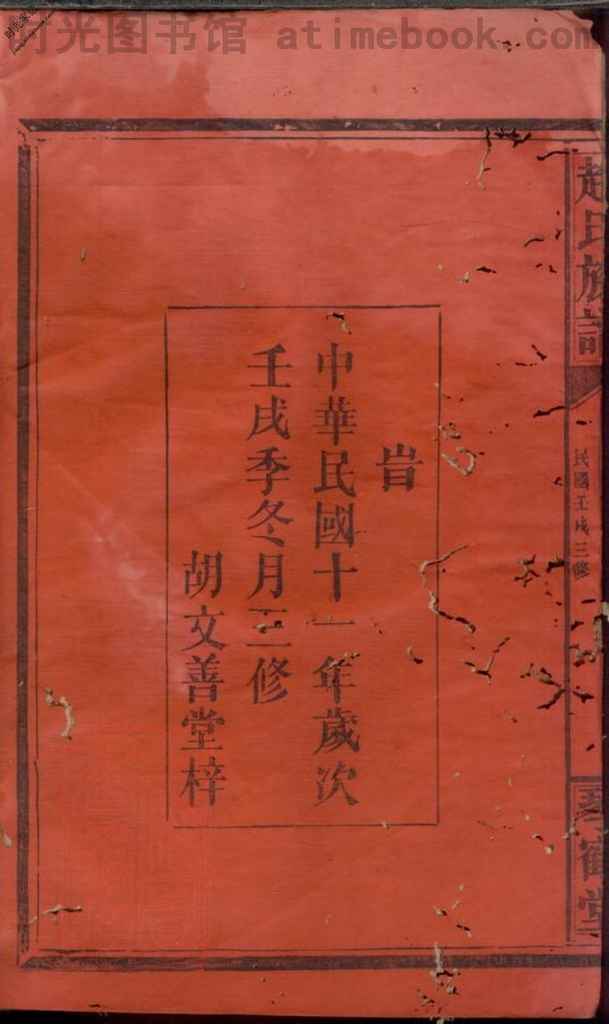 时光图书馆 atimebook.com
趙氏族譜
民國壬戌三修
琴鶴堂
旹
中華民國十一年歲次
壬戌季冬月三修
胡文善堂梓